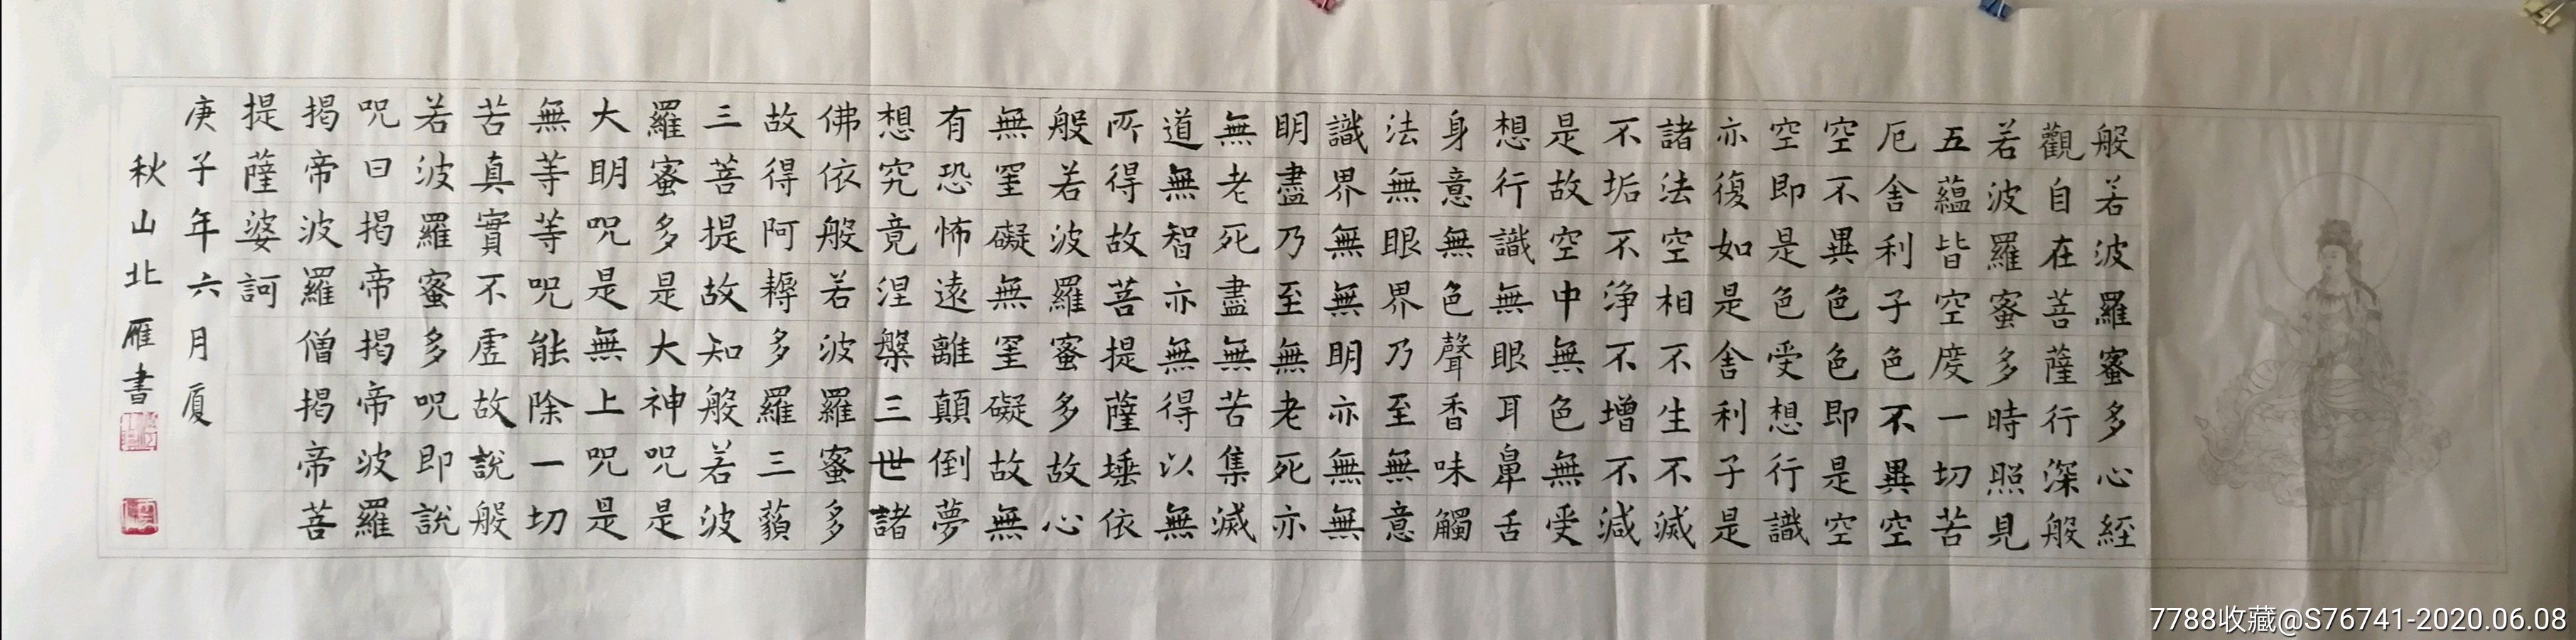 般若波羅蜜多心經
觀自在菩薩行深般
若波羅蜜多時照見
五蘊皆空度一切苦
厄舍利子色不異空
空不異色色即是空
空即是色受想行識
亦復如是舍利子是
諸法空相不生不滅
不垢不淨不增不減
是故空中無色無受
想行識無眼耳鼻舌
身意無色聲香味觸
法無眼界乃至無意
識界無無明亦無無
明盡乃至無老死亦
無老死盡無苦集滅
道無智亦無得以無
所得故菩提薩埵依
般若波羅蜜多故心
無罣礙無罣礙故無
有恐怖遠離顛倒夢
想究竟涅槃三世諸
佛依般若波羅蜜多
故得阿耨多羅三藐
三菩提故知般若波
羅蜜多是大神咒是
大明咒是無上咒是
無等等咒能除一切
苦真實不虛故說般
若波羅蜜多咒即說
咒曰揭帝揭帝波羅
揭帝波羅僧揭帝菩
提薩婆訶
庚子年六月夏
秋山北雁書
7788收藏@S76741-2020.06.08